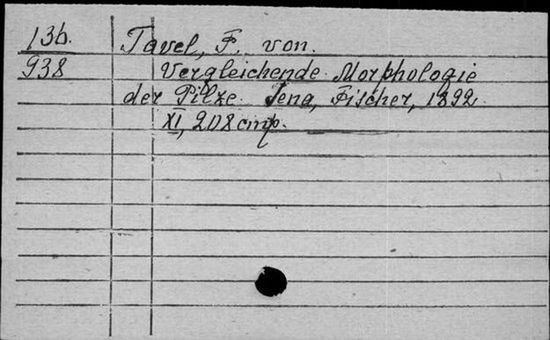 13b. Tavel, F. von.
938 Vergleichende Morphologie
der Pilze. Jena, Fischer, 1892.
XI, 208 стр.